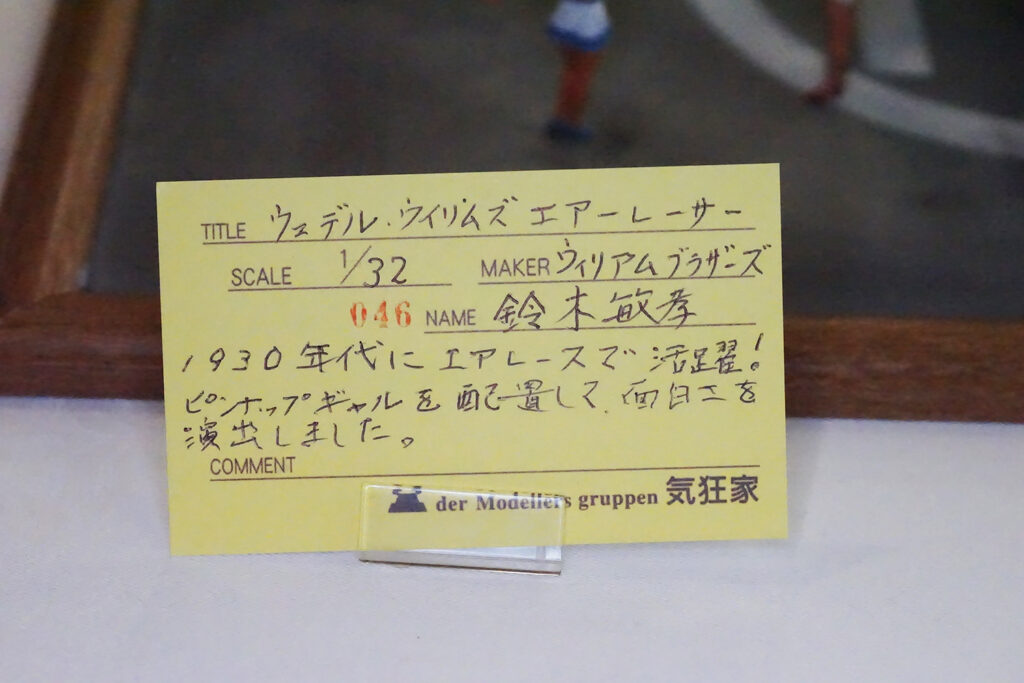 TITLE ウェデル・ウイリアムズ エアーレーサー
SCALE 1/32 MAKER ウィリアムブラザーズ
046 NAME 鈴木敏孝
1930年代にエアレースで活躍!
ピンナップギャルを配置して、面白さを
演出しました。
COMMENT
der Modellers gruppen 気狂家